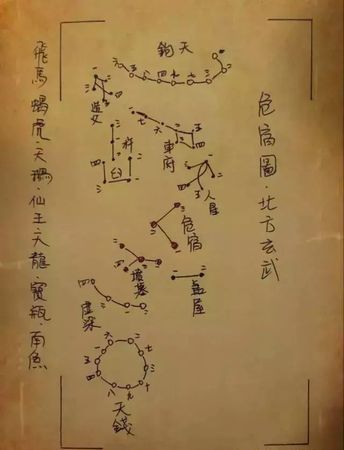 危宿圖·北方玄武
天鈎
造父
杵
臼
車府
人星
危宿
墳墓
蓋屋
虛梁
天錢
飛馬·蝎虎·天鵝·仙王·天龍·寶瓶·南魚